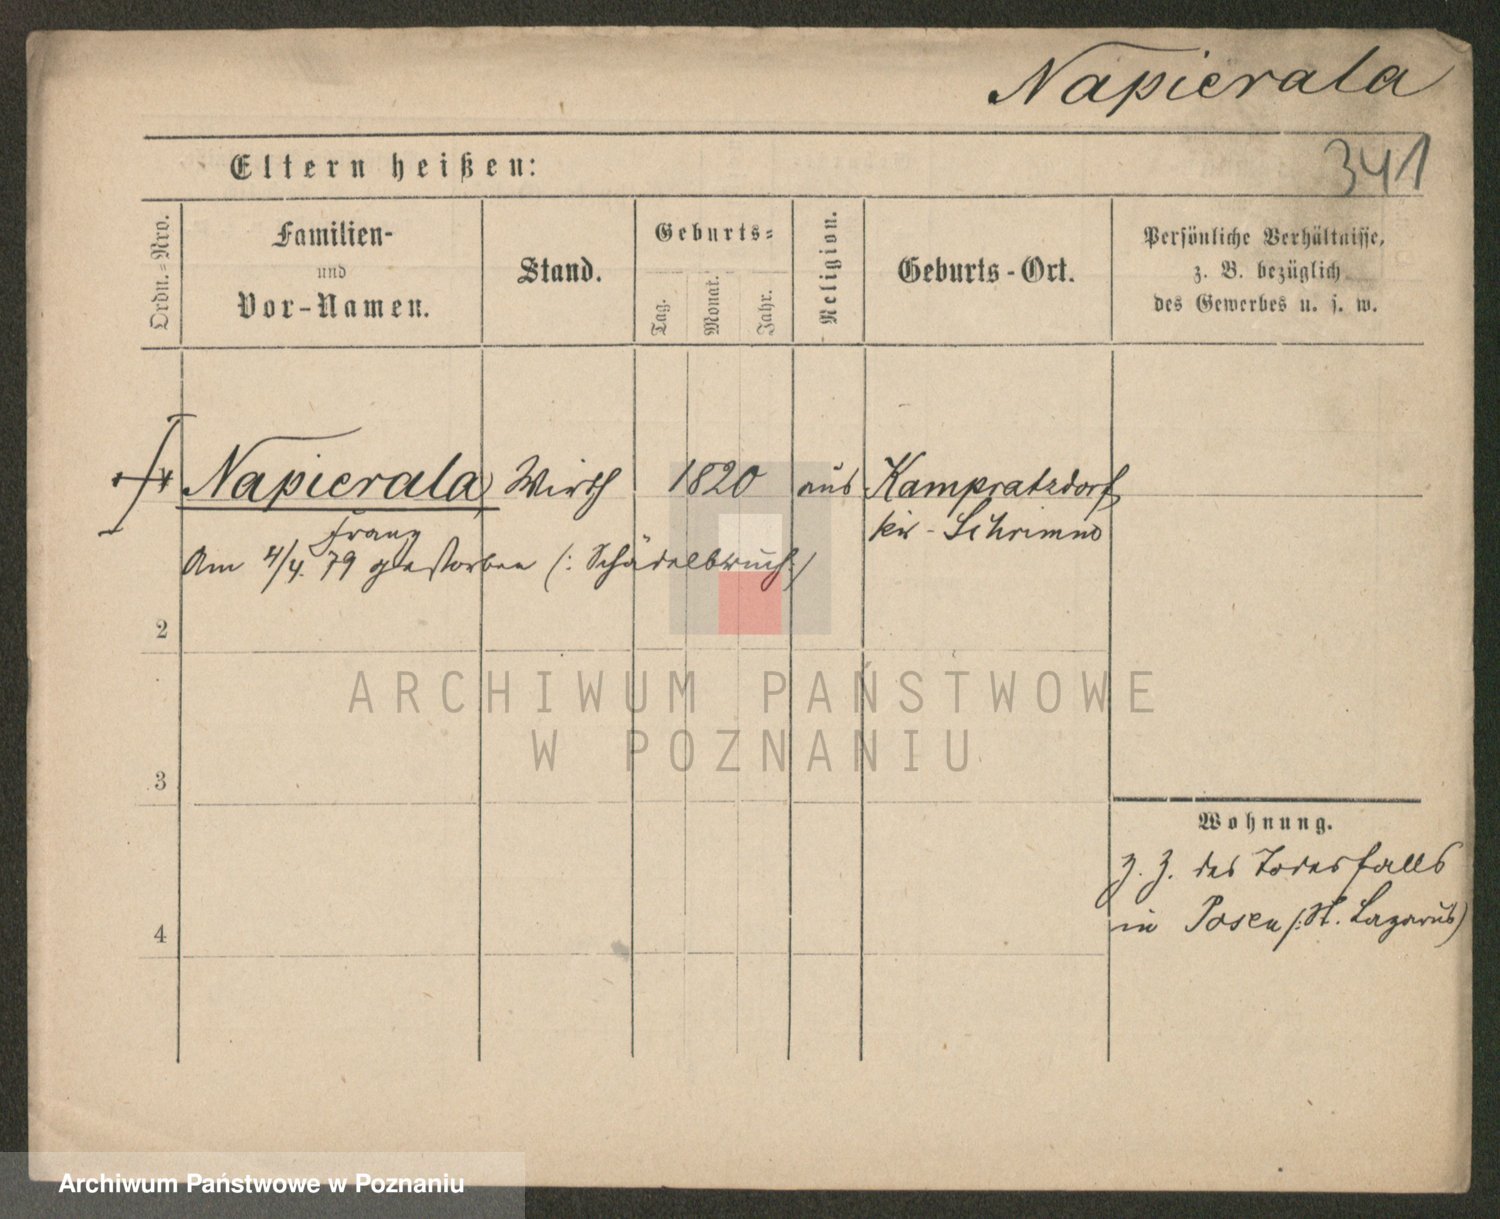 Napierala
341
Eltern heißen:
Ordn.-Nro.
Familien-
und
Vor-Namen.
Stand.
Geburts-
Tag.
Monat.
Jahr.
Religion.
Geburts-Ort.
Persönliche Verhältnisse,
z. B. bezüglich
des Gewerbes u. s. w.
Napierala, Wirth 1820 aus Kampratzdorf
Franz
Kr. Schrimm
Am 4/4. 79 gestorben (: Schädelbruch :)
2
ARCHIWUM PAŃSTWOWE
W POZNANIU
3
Wohnung.
z. Z. des Todesfalls
in Posen (: St. Lazarus)
4
Archiwum Państwowe w Poznaniu